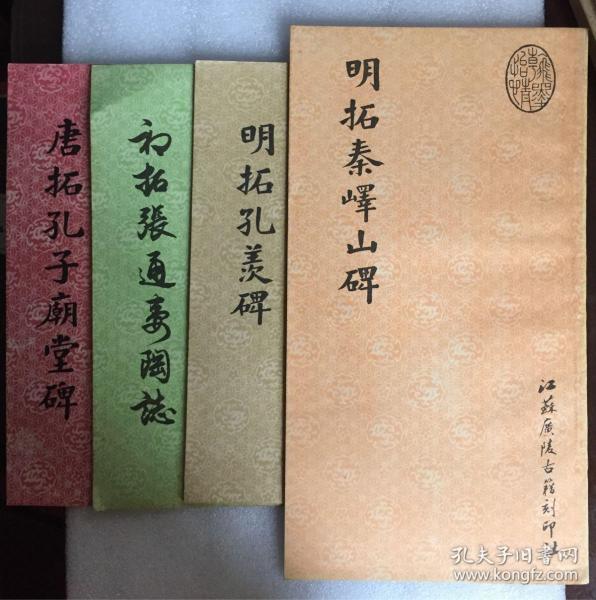 明拓秦嶧山碑
江蘇廣陵古籍刻印社
明拓孔羨碑
初拓張通妻陶誌
唐拓孔子廟堂碑
孔夫子旧书网
www.kongfz.com